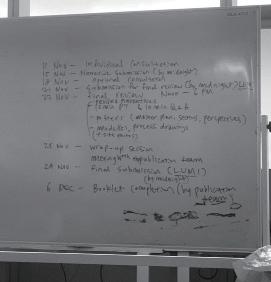 11 Nov - Individual consultation
15 Nov - Narrative Submission (by midnight)
18 Nov - optional consultation
21 Nov - Submission for final review (by midnight)
22 Nov - final review Noon - 6 PM
- review presentations
- posters (master plan, sections, perspectives)
- models, process drawings
25 Nov - wrap-up session
meeting with publication team
29 Nov - Final Submission (LUMI)
(by midnight)
6 DEC - Booklet completion (by publication
team)